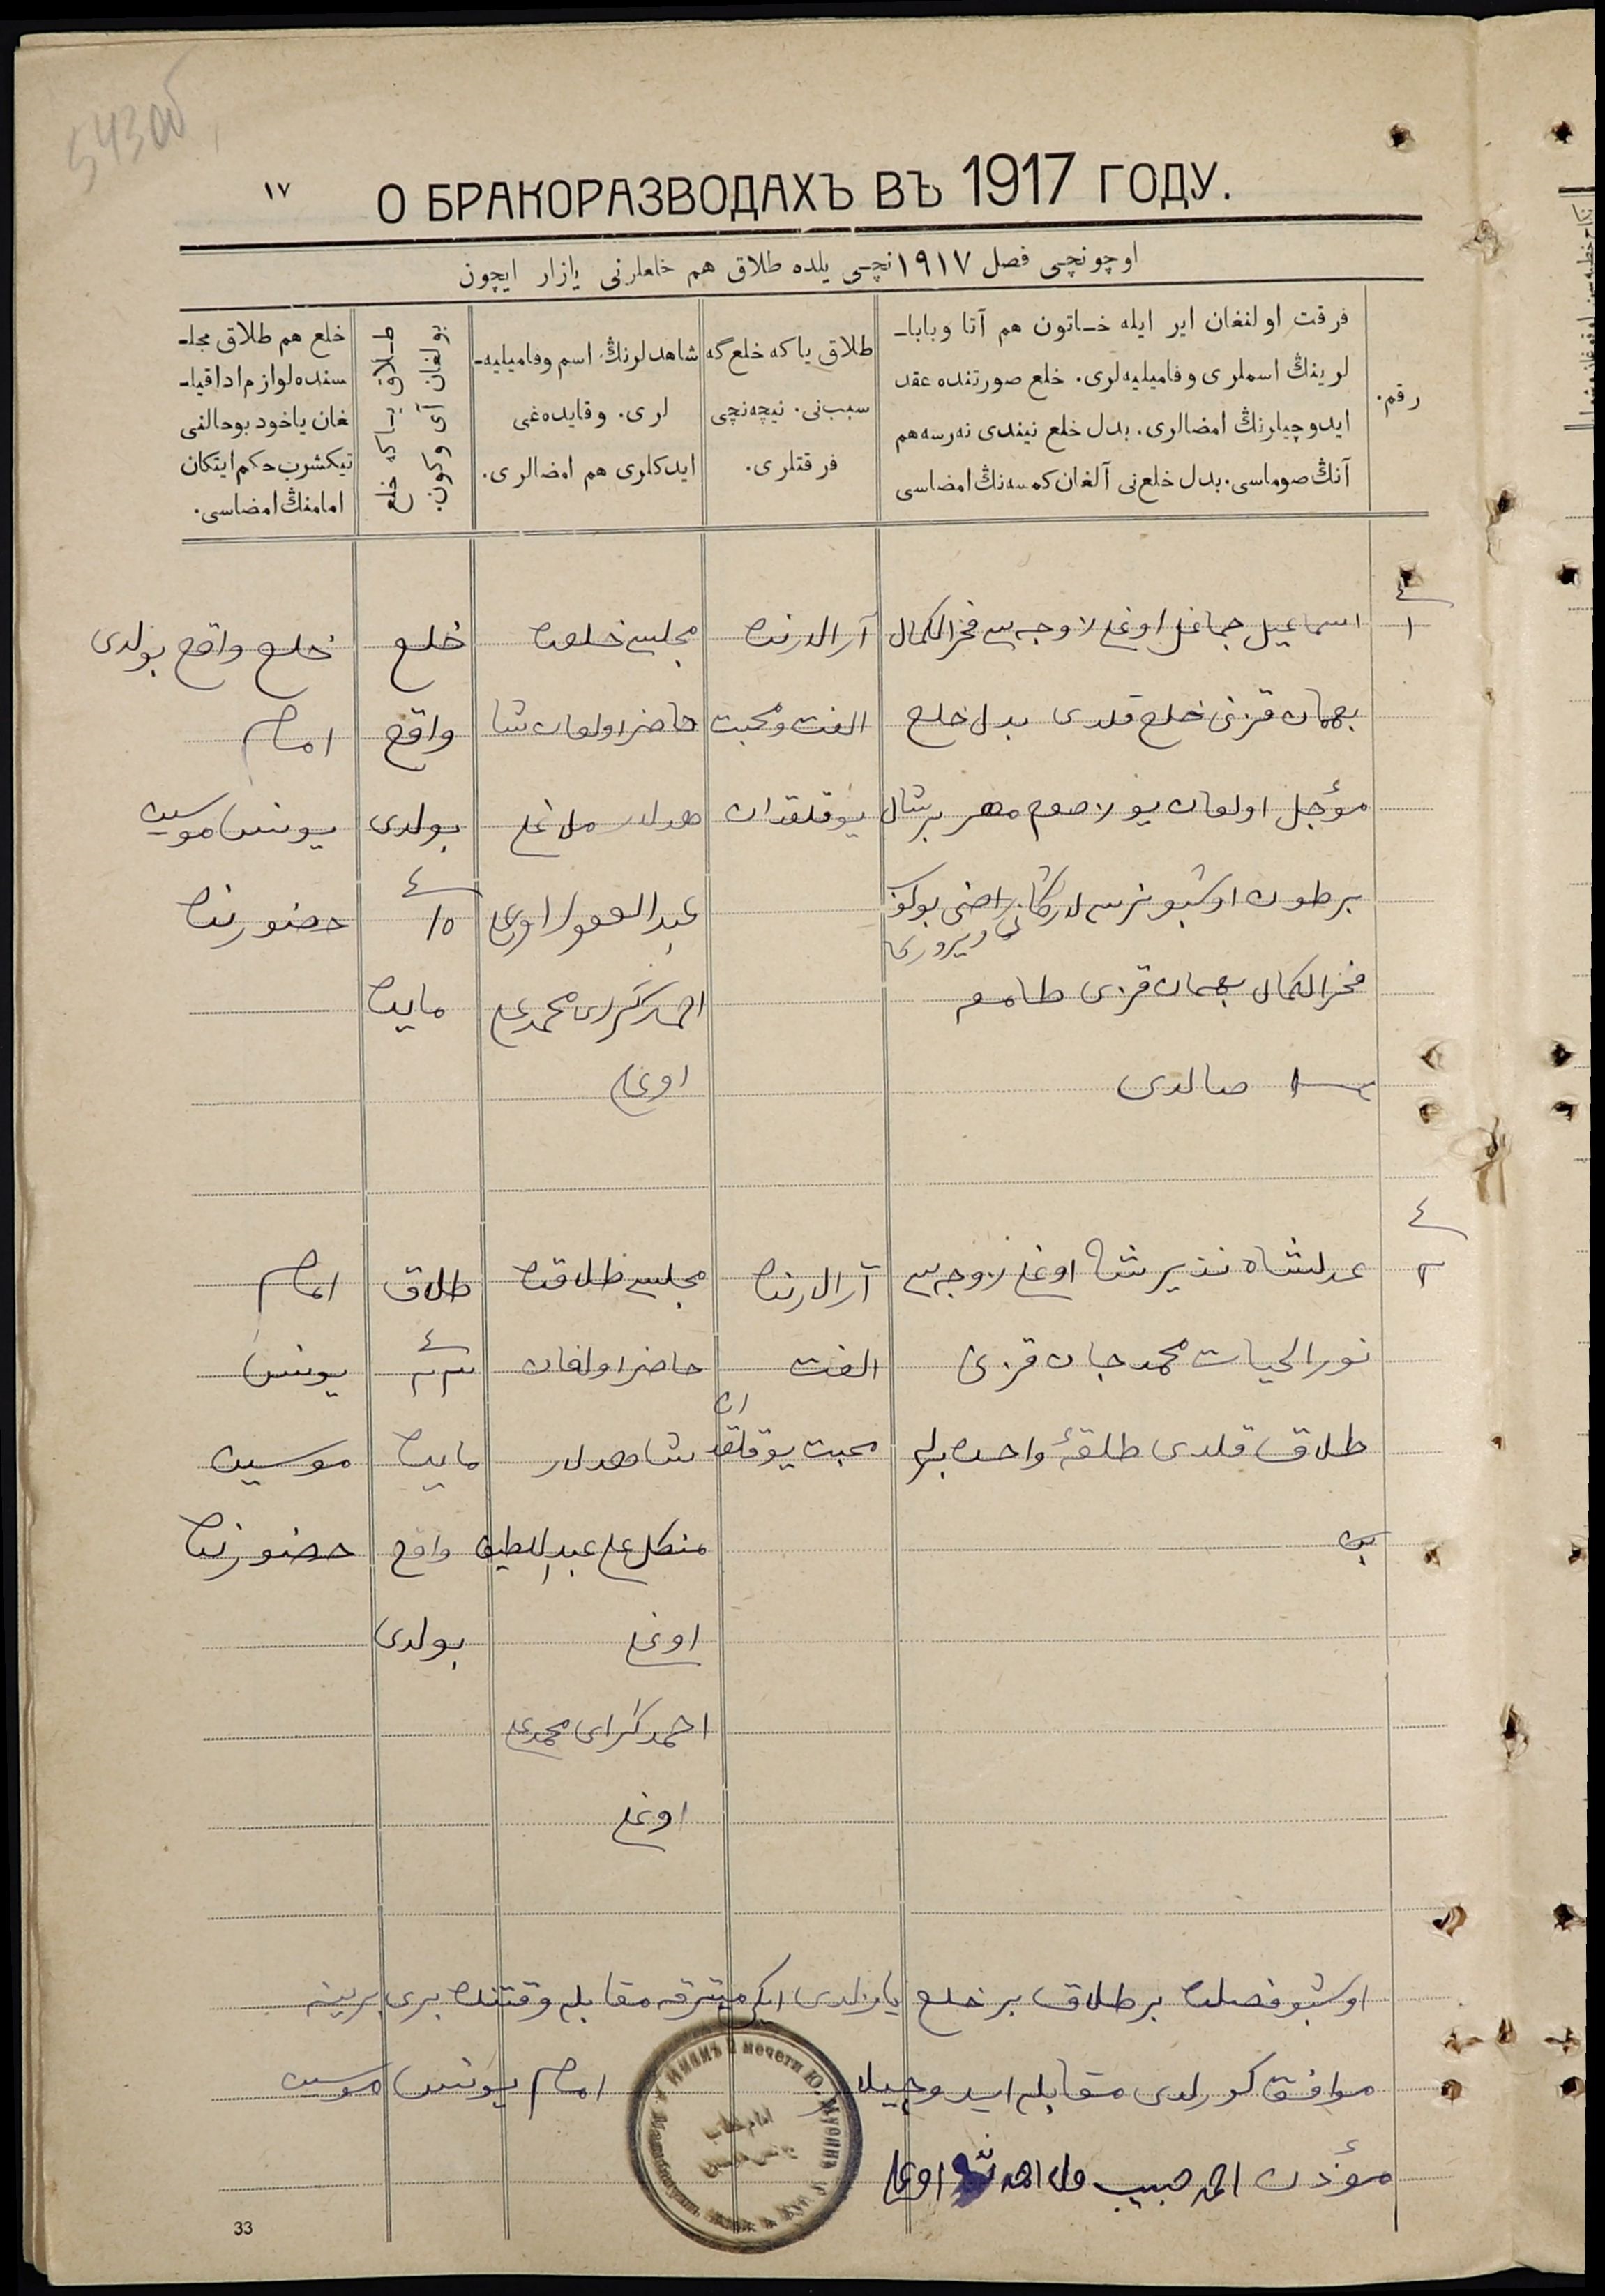 543 об
١٧
О БРАКОРАЗВОДАХЪ ВЪ 1917 ГОДУ.
اوچونچی فصل ١٩١٧نچی یلده طلاق هم خلعلرنی یازار ایچون
رقم.
فرقت اولنغان ایر ایله خاتون هم آتا وبابا-
لرینڭ اسملری وفامیلیه‌لری. خلع صورتنده عقد
ایدوچیلرنڭ امضالری. بدل خلع نیندی نه‌رسه هم
آنڭ صوماسی. بدل خلع‌نی آلغان کمسه‌نڭ امضاسی
طلاق یاکه خلع‌گه
سبب‌نی. نیچه‌نچی
فرقتلری.
شاهدلرنڭ اسم وفامیلیه-
لری. وقایده‌غی
ایدکلری هم امضالری.
طلاق یاکه خلع
بولغان آی وکون.
خلع هم طلاق مجلـ
سنده لوازم ادا قیلـ
غان یاخود بو حالنی
تیکشرب حکم ایتکان
امامنڭ امضاسی.
١
اسماعیل جماغل اوغلی زوجه‌سی فخرالکمال
بهمان قزنی خلع قلدی بدل خلع
مؤجل اولغان یوز صوم مهر بر شال
بر طون اوشبو نرسه‌لار
فخرالکمال بهمان قزی
صالدی
آرالارنده
الفت ومحبت
یوقلقدان
مجلس خلعده
حاضر اولغان شا
هدلار
عبدالغفور اوغلی
احمدکرای محمدی
اوغلی
خلع
واقع
بولدی
١٥
مایده
خلع واقع بولدی
امام
یونس موسین
حضورنده
٢
عدلشاه نذیرشاه اوغلی زوجه‌سی
نورالحیات محمدجان قزی
طلاق قلدی طلقهٔ واحده بله
آرالارنده
الفت
محبت یوقلقدان
مجلس طلاقده
حاضر اولغان
شاهدلار
عبداللطیف
اوغلی
احمدکرای محمدی
اوغلی
طلاق
٢٣
مایده
واقع
بولدی
امام
یونس
موسین
حضورنده
اوشبو فصلده بر طلاق بر خلع یازلدی ایکی میترقه مقابله وقتنده بری برینه
موافق کورلدی مقابله ایدوچیلار امام یونس موسین
مؤذن احمد حبیب اوغلی
33